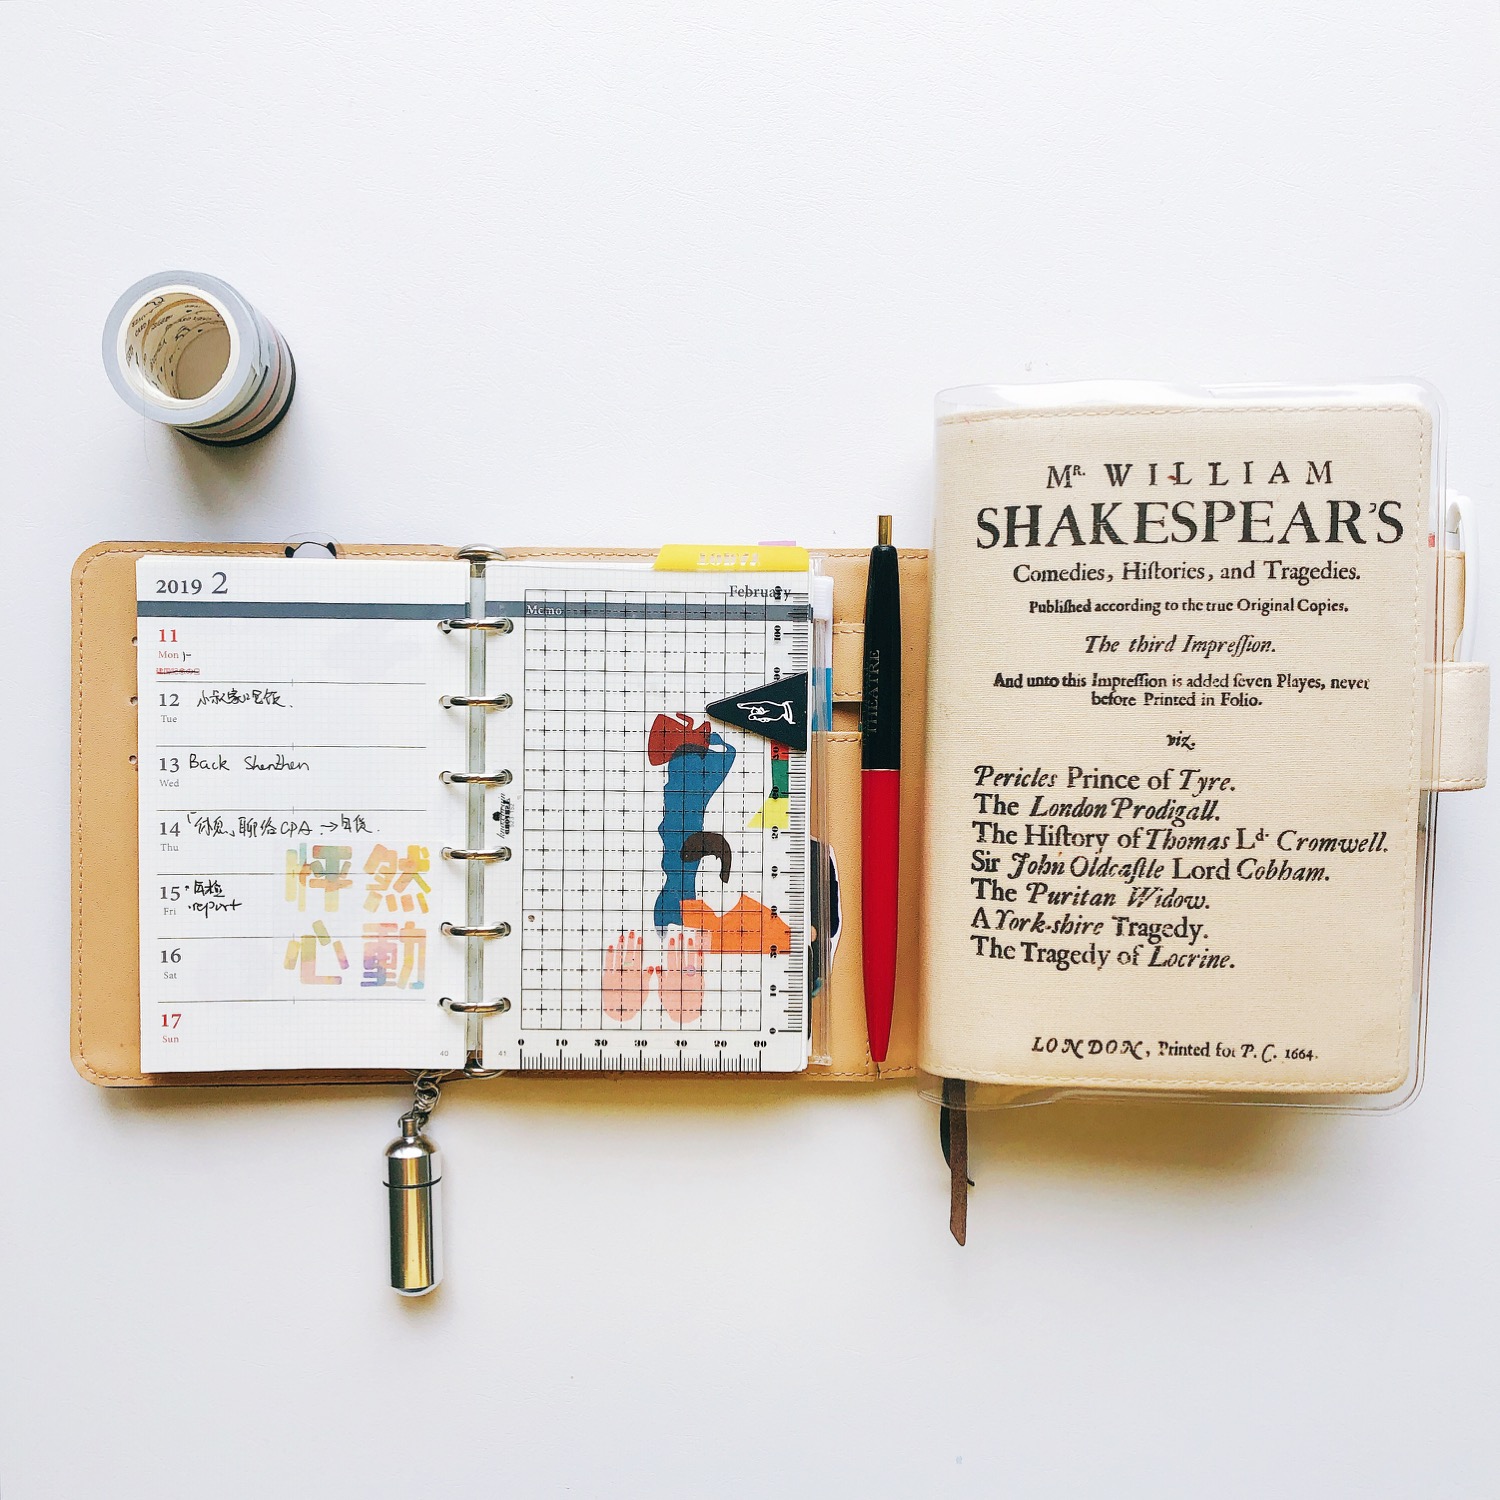 2019 2
11
Mon
12
Tue
13 Back Shenzhen
Wed
14 聊给CPA →
Thu
15 · 年检
Fri · report
16
Sat
17
Sun
怦然
心動
40
February
Memo
41
THEATRE
MR. WILLIAM
SHAKESPEAR'S
Comedies, Hiſtories, and Tragedies.
Publiſhed according to the true Original Copies.
The third Impreſſion.
And unto this Impreſſion is added ſeven Playes, never
before Printed in Folio.
viz.
Pericles Prince of Tyre.
The London Prodigall.
The Hiſtory of Thomas Ld. Cromwell.
Sir John Oldcaſtle Lord Cobham.
The Puritan Widow.
A York-shire Tragedy.
The Tragedy of Locrine.
LONDON, Printed for P. C. 1664.